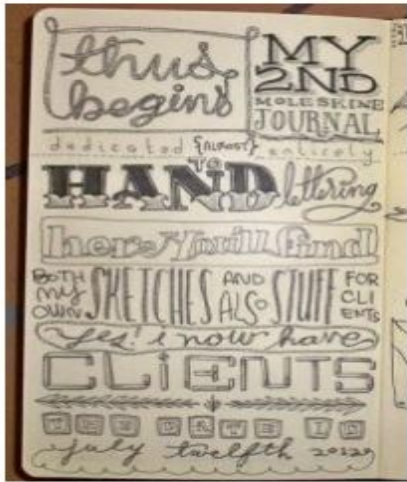 thus
begins
MY
2ND
MOLESKINE
JOURNAL
dedicated {ALMOST} entirely
TO
HAND lettering
here you'll find
BOTH my OWN SKETCHES AND ALSO STUFF FOR CLIENTS
yes! i now have
CLiENTS
THE DATE IS
july twelfth 2012